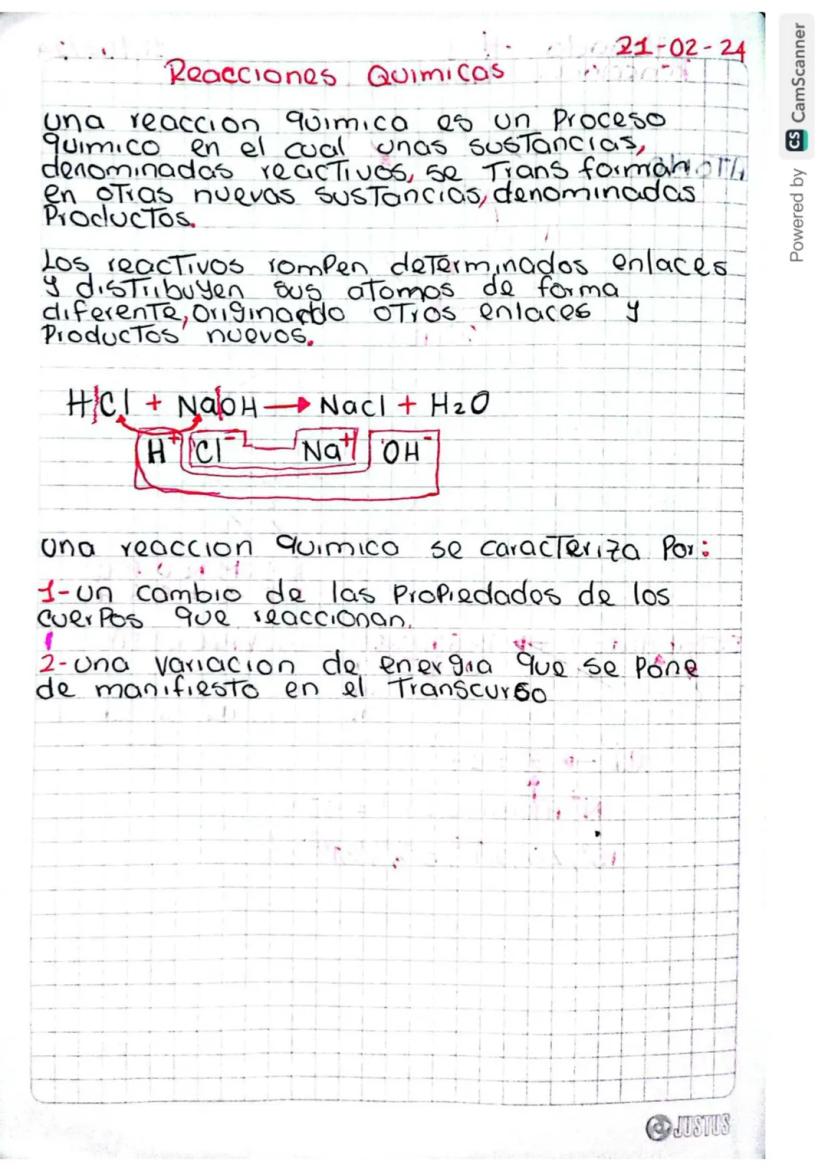 21-02-24
Reacciones Quimicas
una reaccion quimica es un Proceso
quimico en el cual unas sustancias,
denominadas reactivos, se Transforman
en otras nuevas sustancias, denominadas
Productos.
Los reactivos rompen determinados enlaces
y distribuyen sus atomos de forma
diferente, originando otros enlaces y
Productos nuevos.
HCl + NaOH → Nacl + H₂O
H⁺ Cl⁻ Na⁺ OH⁻
una reaccion quimico se caracteriza Por:
1-un cambio de las Propiedados de los
cuerpos que reaccionan.
2-una variacion de energia que se pone
de manifiesto en el Transcurso
JUSTUS
Powered by CS CamScanner